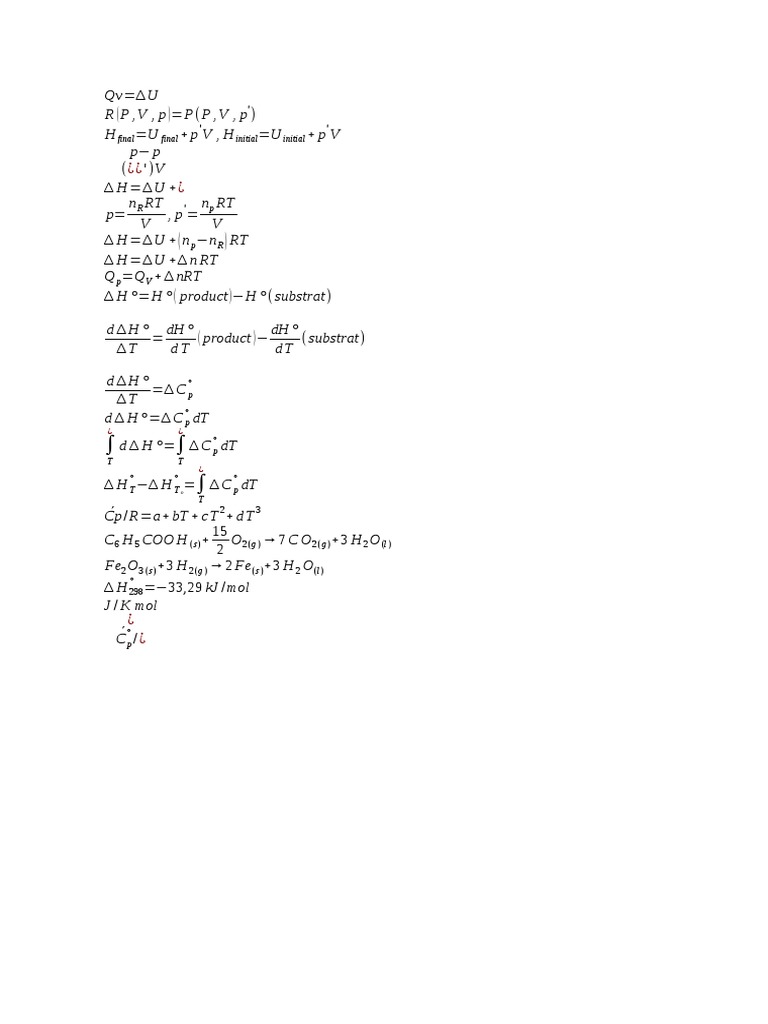 Qv=ΔU
R(P,V,p)=P(P,V,p')
H_final=U_final+p'V, H_initial=U_initial+p'V
p−p
(¿¿')V
ΔH=ΔU+¿
p=n_R RT/V, p'=n_p RT/V
ΔH=ΔU+(n_p−n_R)RT
ΔH=ΔU+ΔnRT
Q_p=Q_V+ΔnRT
ΔH°=H°(product)−H°(substrat)
dΔH°/ΔT=dH°/dT(product)−dH°/dT(substrat)
dΔH°/ΔT=ΔC_p°
dΔH°=ΔC_p°dT
∫_T^¿ dΔH°=∫_T^¿ ΔC_p°dT
ΔH_T°−ΔH_T°°=∫_T^¿ ΔC_p°dT
Ćp/R=a+bT+cT²+dT³
C₆H₅COOH(s)+15/2 O₂(g)→7CO₂(g)+3H₂O(l)
Fe₂O₃(s)+3H₂(g)→2Fe(s)+3H₂O(l)
ΔH°₂₉₈=−33,29 kJ/mol
J/K mol
¿
Ć_p°/¿